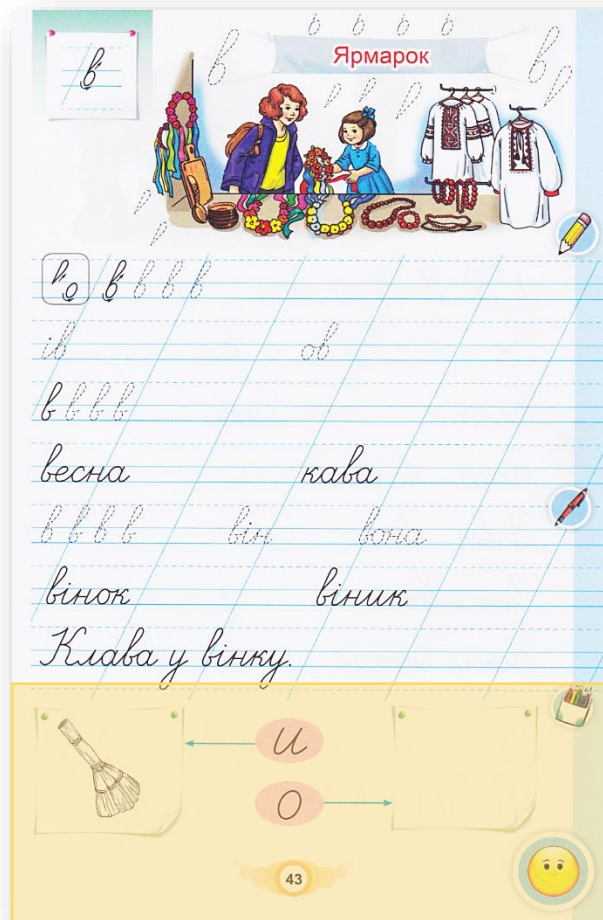 в
в в в в
Ярмарок
в в
в о в в в в
ів ов
в в в в
весна кава
в в в в він вона
вінок віник
Клава у вінку.
и
о
43